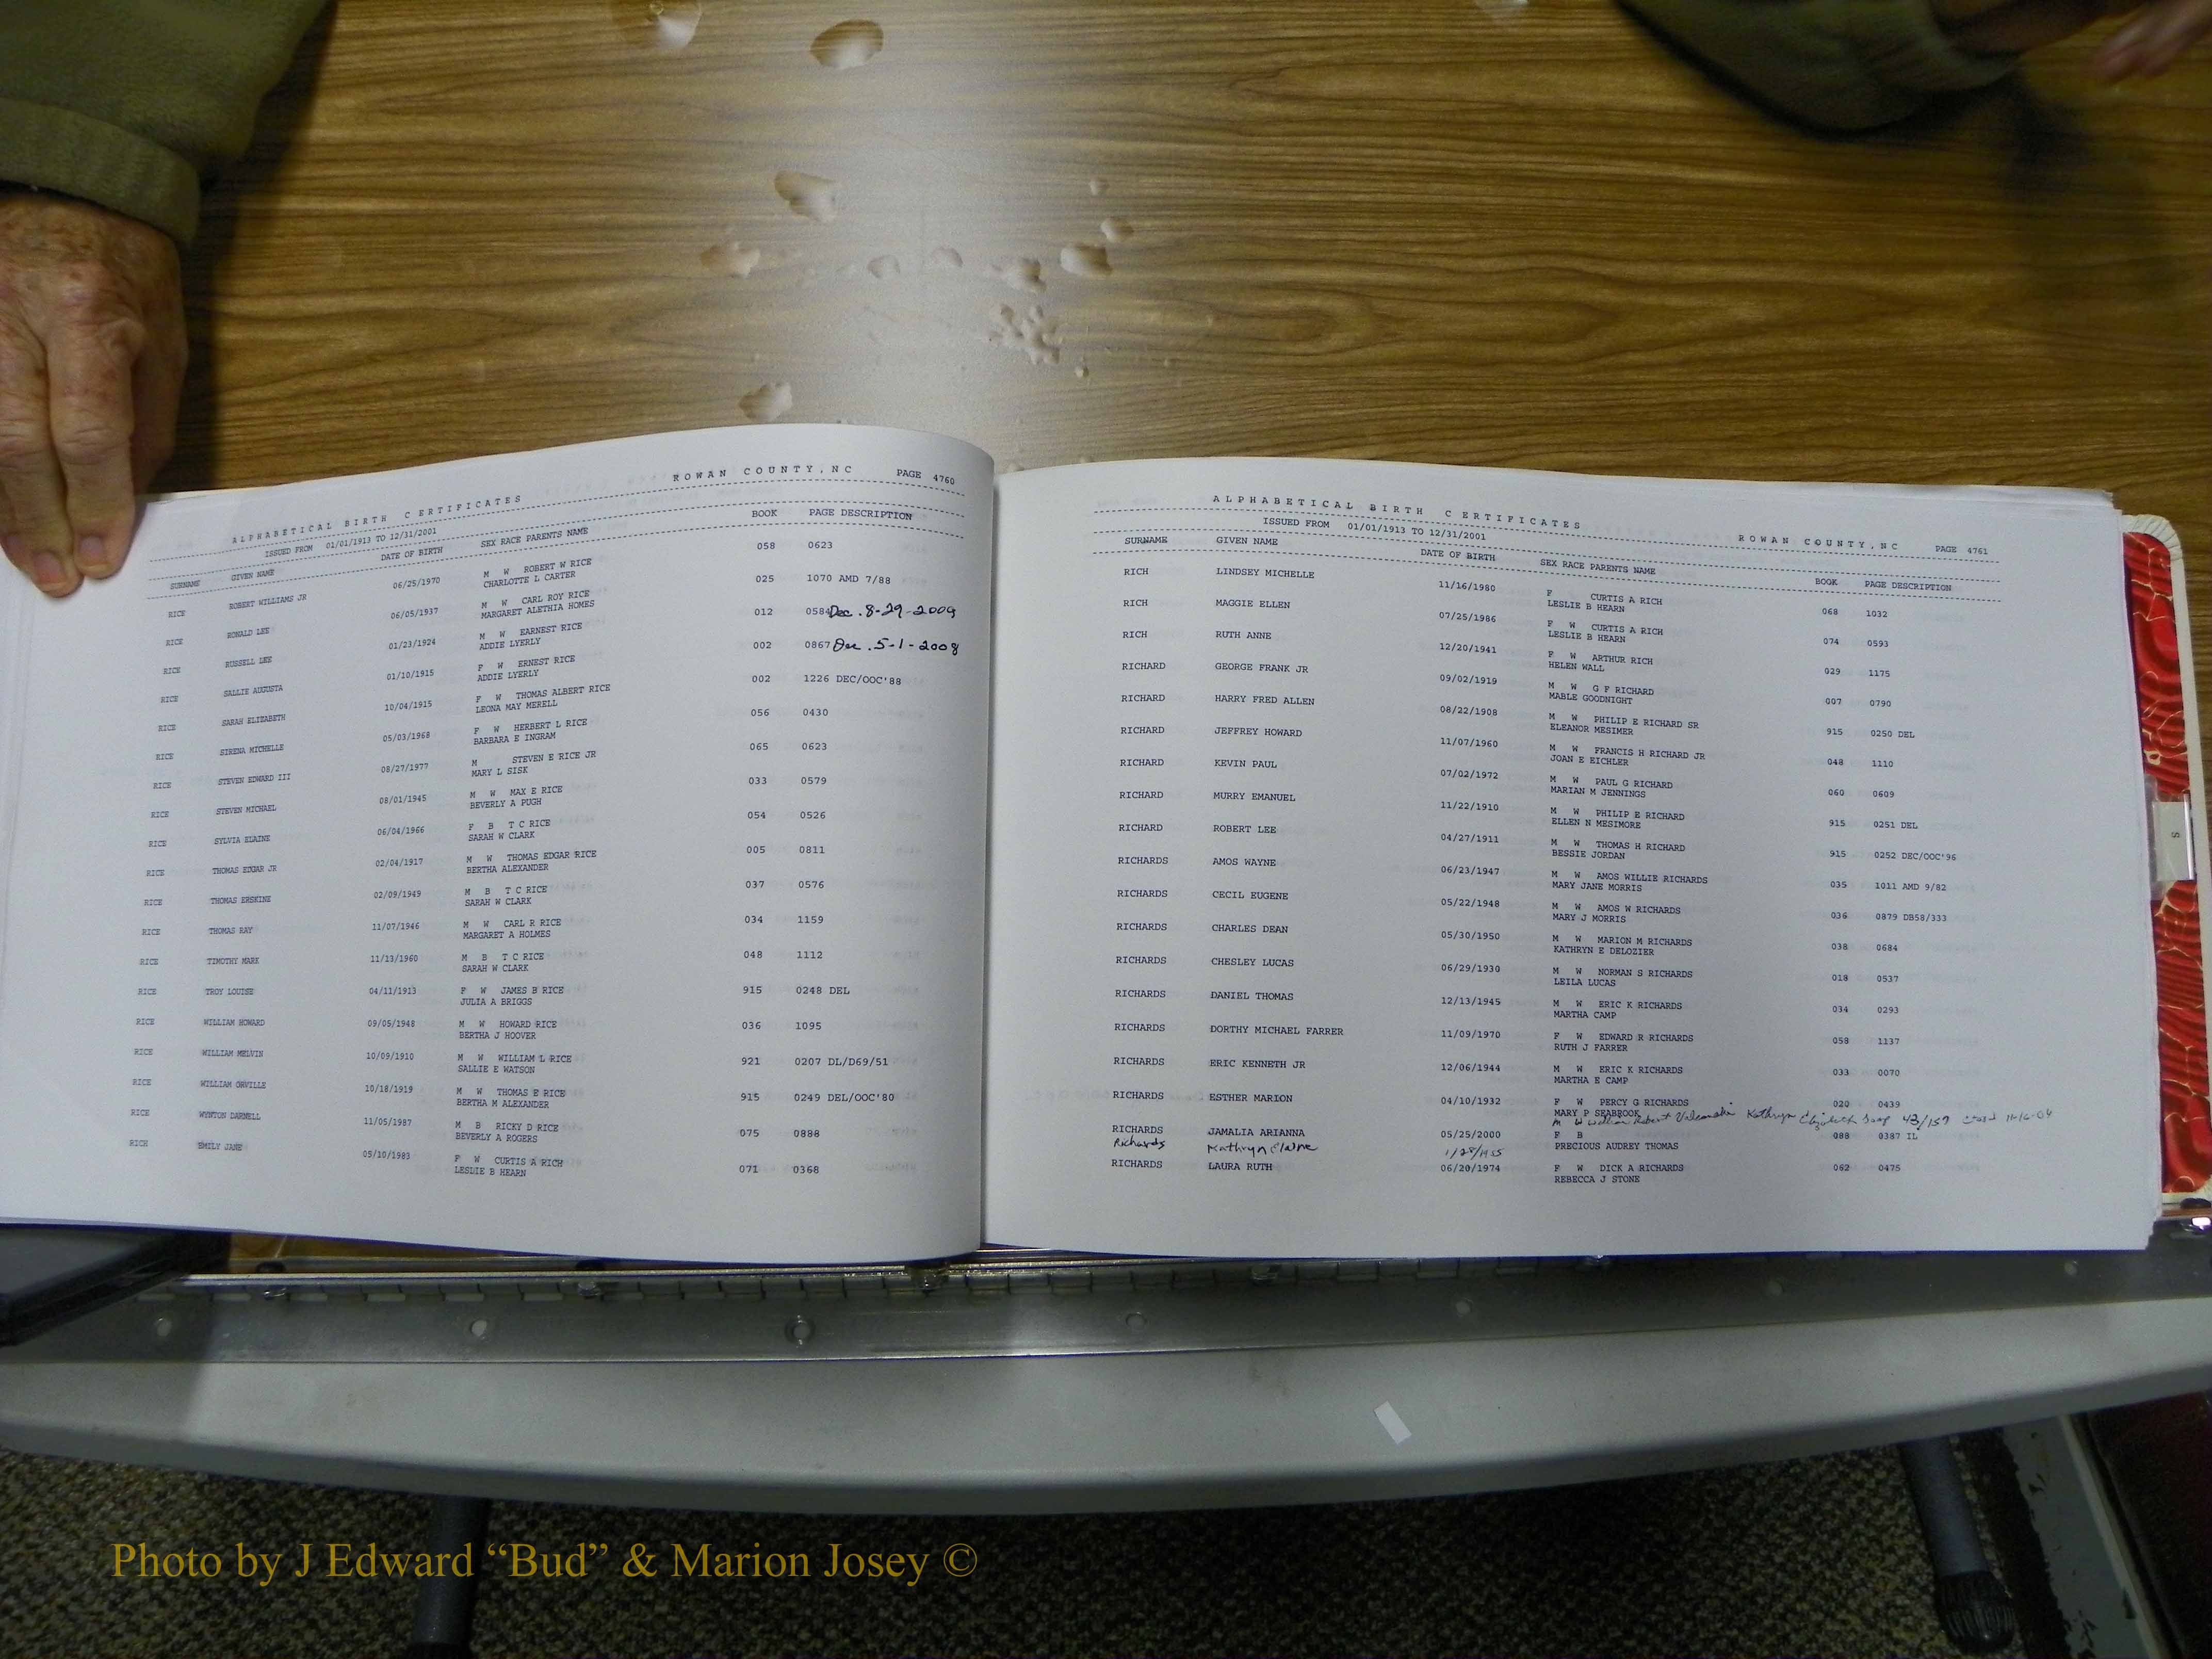 ALPHABETICAL BIRTH CERTIFICATES ROWAN COUNTY,NC PAGE 4760
ISSUED FROM 01/01/1913 TO 12/31/2001
SURNAME GIVEN NAME DATE OF BIRTH SEX RACE PARENTS NAME BOOK PAGE DESCRIPTION
RICE ROBERT WILLIAMS JR 06/25/1970 M W ROBERT W RICE 058 0623
CHARLOTTE L CARTER
RICE RONALD LEE 06/05/1937 M W CARL ROY RICE 025 1070 AMD 7/88
MARGARET ALETHIA HOMES
RICE RUSSELL LEE 01/23/1924 M W EARNEST RICE 012 0584 Dec. 8-29-2009
ADDIE LYERLY
RICE SALLIE AUGUSTA 01/10/1915 F W ERNEST RICE 002 0867 Dec. 5-1-2008
ADDIE LYERLY
RICE SARAH ELIZABETH 10/04/1915 F W THOMAS ALBERT RICE 002 1226 DEC/OOC'88
LEONA MAY MERELL
RICE SIRENA MICHELLE 05/03/1968 F W HERBERT L RICE 056 0430
BARBARA E INGRAM
RICE STEVEN EDWARD III 08/27/1977 M STEVEN E RICE JR 065 0623
MARY L SISK
RICE STEVEN MICHAEL 08/01/1945 M W MAX E RICE 033 0579
BEVERLY A PUGH
RICE SYLVIA ELAINE 06/04/1966 F B T C RICE 054 0526
SARAH W CLARK
RICE THOMAS EDGAR JR 02/04/1917 M W THOMAS EDGAR RICE 005 0811
BERTHA ALEXANDER
RICE THOMAS ERSKINE 02/09/1949 M B T C RICE 037 0576
SARAH W CLARK
RICE THOMAS RAY 11/07/1946 M W CARL R RICE 034 1159
MARGARET A HOLMES
RICE TIMOTHY MARK 11/13/1960 M B T C RICE 048 1112
SARAH W CLARK
RICE TROY LOUISE 04/11/1913 F W JAMES B RICE 915 0248 DEL
JULIA A BRIGGS
RICE WILLIAM HOWARD 09/05/1948 M W HOWARD RICE 036 1095
BERTHA J HOOVER
RICE WILLIAM MELVIN 10/09/1910 M W WILLIAM L RICE 921 0207 DL/D69/51
SALLIE E WATSON
RICE WILLIAM ORVILLE 10/18/1919 M W THOMAS E RICE 915 0249 DEL/OOC'80
BERTHA M ALEXANDER
RICE WYNTON DARNELL 11/05/1987 M B RICKY D RICE 075 0888
BEVERLY A ROGERS
RICH EMILY JANE 05/10/1983 F W CURTIS A RICH 071 0368
LESLIE B HEARN
ALPHABETICAL BIRTH CERTIFICATES ROWAN COUNTY,NC PAGE 4761
ISSUED FROM 01/01/1913 TO 12/31/2001
SURNAME GIVEN NAME DATE OF BIRTH SEX RACE PARENTS NAME BOOK PAGE DESCRIPTION
RICH LINDSEY MICHELLE 11/16/1980 F CURTIS A RICH 068 1032
LESLIE B HEARN
RICH MAGGIE ELLEN 07/25/1986 F W CURTIS A RICH 074 0593
LESLIE B HEARN
RICH RUTH ANNE 12/20/1941 F W ARTHUR RICH 029 1175
HELEN WALL
RICHARD GEORGE FRANK JR 09/02/1919 M W G F RICHARD 007 0790
MABLE GOODNIGHT
RICHARD HARRY FRED ALLEN 08/22/1908 M W PHILIP E RICHARD SR 915 0250 DEL
ELEANOR MESIMER
RICHARD JEFFREY HOWARD 11/07/1960 M W FRANCIS H RICHARD JR 048 1110
JOAN E EICHLER
RICHARD KEVIN PAUL 07/02/1972 M W PAUL G RICHARD 060 0609
MARIAN M JENNINGS
RICHARD MURRY EMANUEL 11/22/1910 M W PHILIP E RICHARD 915 0251 DEL
ELLEN N MESIMORE
RICHARD ROBERT LEE 04/27/1911 M W THOMAS H RICHARD 915 0252 DEC/OOC'96
BESSIE JORDAN
RICHARDS AMOS WAYNE 06/23/1947 M W AMOS WILLIE RICHARDS 035 1011 AMD 9/82
MARY JANE MORRIS
RICHARDS CECIL EUGENE 05/22/1948 M W AMOS W RICHARDS 036 0879 DB58/333
MARY J MORRIS
RICHARDS CHARLES DEAN 05/30/1950 M W MARION M RICHARDS 038 0684
KATHRYN E DELOZIER
RICHARDS CHESLEY LUCAS 06/29/1930 M W NORMAN S RICHARDS 018 0537
LEILA LUCAS
RICHARDS DANIEL THOMAS 12/13/1945 M W ERIC K RICHARDS 034 0293
MARTHA CAMP
RICHARDS DORTHY MICHAEL FARRER 11/09/1970 F W EDWARD R RICHARDS 058 1137
RUTH J FARRER
RICHARDS ERIC KENNETH JR 12/06/1944 M W ERIC K RICHARDS 033 0070
MARTHA E CAMP
RICHARDS ESTHER MARION 04/10/1932 F W PERCY G RICHARDS 020 0439
MARY P SEABROOK
M W William Robert Kathryn Elizabeth 43/157 11-16-04
RICHARDS JAMALIA ARIANNA 05/25/2000 F B 088 0387 IL
PRECIOUS AUDREY THOMAS
Richards Kathryn Elaine 1/28/1955
RICHARDS LAURA RUTH 06/20/1974 F W DICK A RICHARDS 062 0475
REBECCA J STONE
S
Photo by J Edward “Bud” & Marion Josey ©